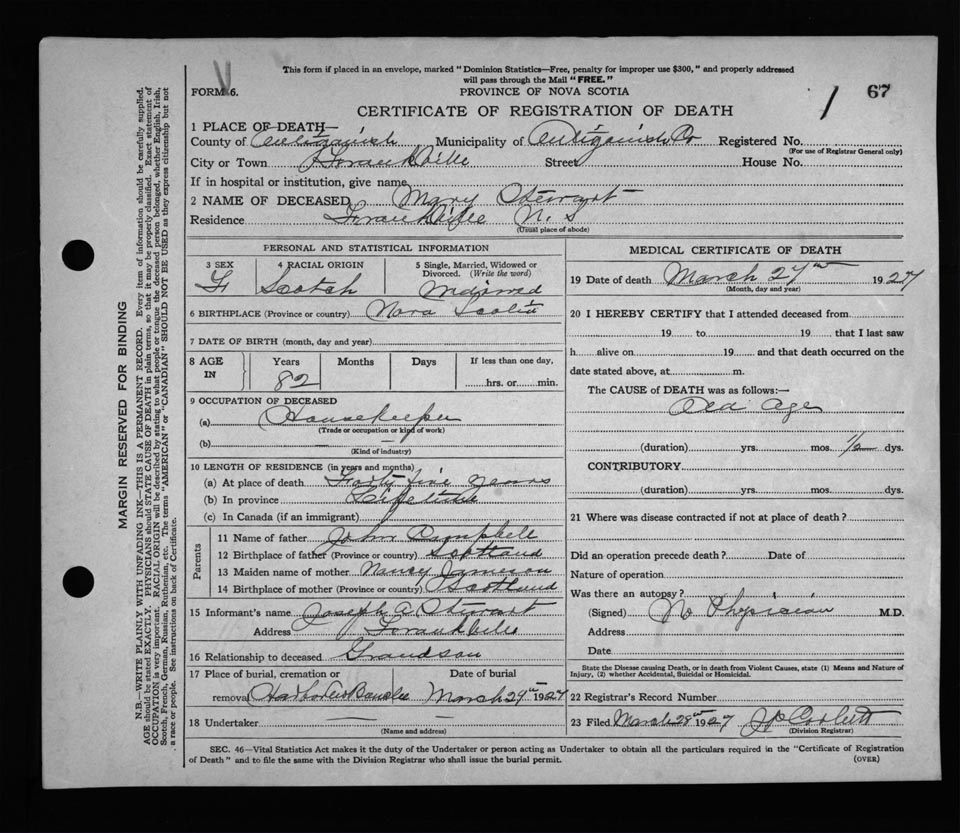 This form if placed in an envelope, marked "Dominion Statistics—Free, penalty for improper use $300," and properly addressed
will pass through the Mail "FREE."
FORM 6. PROVINCE OF NOVA SCOTIA 1 67
CERTIFICATE OF REGISTRATION OF DEATH
1 PLACE OF DEATH—
County of Antigonish Municipality of Antigonish Co Registered No.
(For use of Registrar General only)
City or Town Frankville Street House No.
If in hospital or institution, give name
2 NAME OF DECEASED Mary Stewart
Residence Frankville N. S
(Usual place of abode)
PERSONAL AND STATISTICAL INFORMATION
3 SEX 4 RACIAL ORIGIN 5 Single, Married, Widowed or Divorced. (Write the word)
F Scotch Widowed
6 BIRTHPLACE (Province or country) Nova Scotia
7 DATE OF BIRTH (month, day and year)
8 AGE IN Years Months Days If less than one day,
82 hrs. or min.
9 OCCUPATION OF DECEASED
(a) Housekeeper
(Trade or occupation or kind of work)
(b) — —
(Kind of industry)
10 LENGTH OF RESIDENCE (in years and months)
(a) At place of death Forty five years
(b) In province Life time
(c) In Canada (if an immigrant)
Parents
11 Name of father John Campbell
12 Birthplace of father (Province or country) Scotland
13 Maiden name of mother Nancy Jameson
14 Birthplace of mother (Province or country) Scotland
15 Informant's name Joseph A Stewart
Address Frankville
16 Relationship to deceased Grandson
17 Place of burial, cremation or Date of burial
removal March 29th 1927
18 Undertaker — —
(Name and address)
MEDICAL CERTIFICATE OF DEATH
19 Date of death March 27th 1927
(Month, day and year)
20 I HEREBY CERTIFY that I attended deceased from
19 to 19 that I last saw
h alive on 19 and that death occurred on the
date stated above, at m.
The CAUSE of DEATH was as follows:—
Old Age
(duration) yrs. mos. 1/2 dys.
CONTRIBUTORY
(duration) yrs. mos. dys.
21 Where was disease contracted if not at place of death?
Did an operation precede death? Date of
Nature of operation
Was there an autopsy?
(Signed) No Physician M.D.
Address
Date
State the Disease causing Death, or in death from Violent Causes, state (1) Means and Nature of
Injury, (2) whether Accidental, Suicidal or Homicidal.
22 Registrar's Record Number
23 Filed March 28th 1927 J P Corbett
(Division Registrar)
SEC. 46—Vital Statistics Act makes it the duty of the Undertaker or person acting as Undertaker to obtain all the particulars required in the "Certificate of Registration
of Death" and to file the same with the Division Registrar who shall issue the burial permit. (OVER)
MARGIN RESERVED FOR BINDING
N.B.—WRITE PLAINLY WITH UNFADING INK—THIS IS A PERMANENT RECORD. Every item of information should be carefully supplied.
AGE should be stated EXACTLY. PHYSICIANS should STATE CAUSE OF DEATH in plain terms, so that it may be properly classified. Exact statement of
OCCUPATION is very important. RACIAL ORIGIN will be described by stating to what people or tongue the deceased person belonged, whether English, Irish,
Scotch, French, German, Russian, Ruthenian, etc. The terms "AMERICAN" or "CANADIAN" SHOULD NOT BE USED as they express citizenship but not
a race or people. See instructions on back of Certificate.